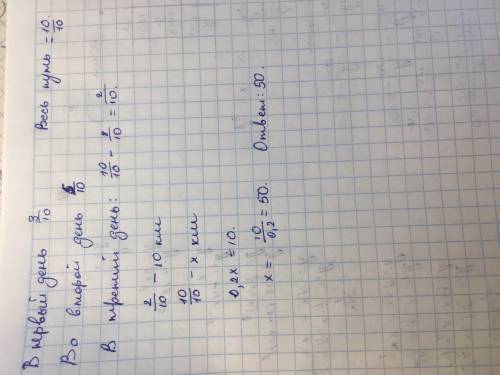 В первый день 3/10 Весь путь = 10/10.
Во второй день 5/10
В третий день: 10/10 - 8/10 = 2/10.
2/10 - 10 км
10/10 - x км
0,2x = 10.
x = 10/0,2 = 50. Ответ: 50.